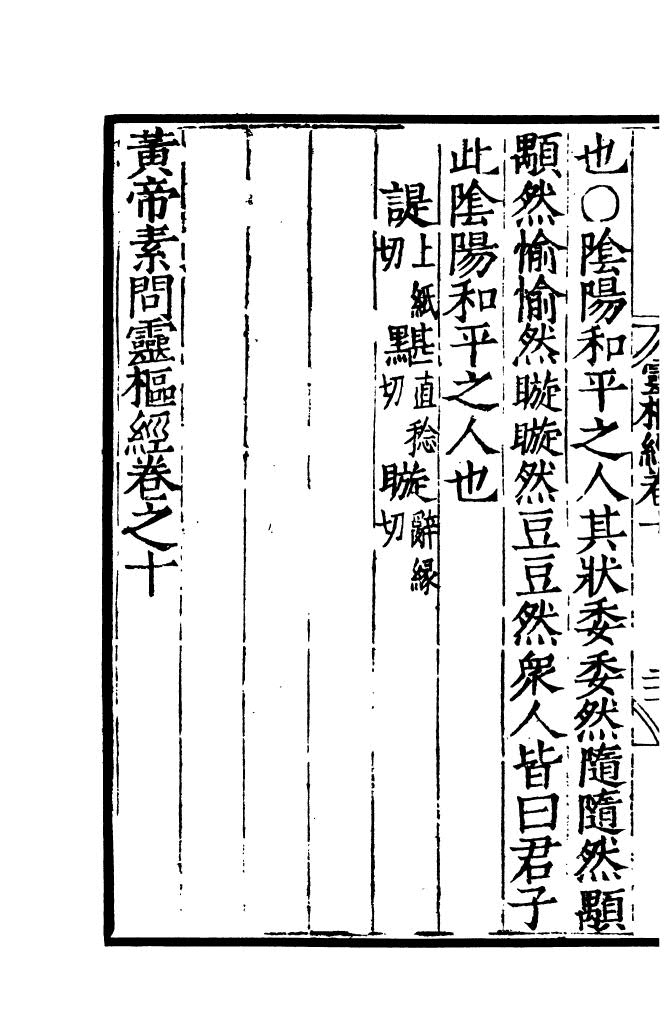 靈樞經卷十
也○陰陽和平之人其狀委委然隨隨然顒
顒然愉愉然䁢䁢然豆豆然衆人皆曰君子
此陰陽和平之人也
諟上紙切黮直稔切䁢辭緣切
黃帝素問靈樞經卷之十